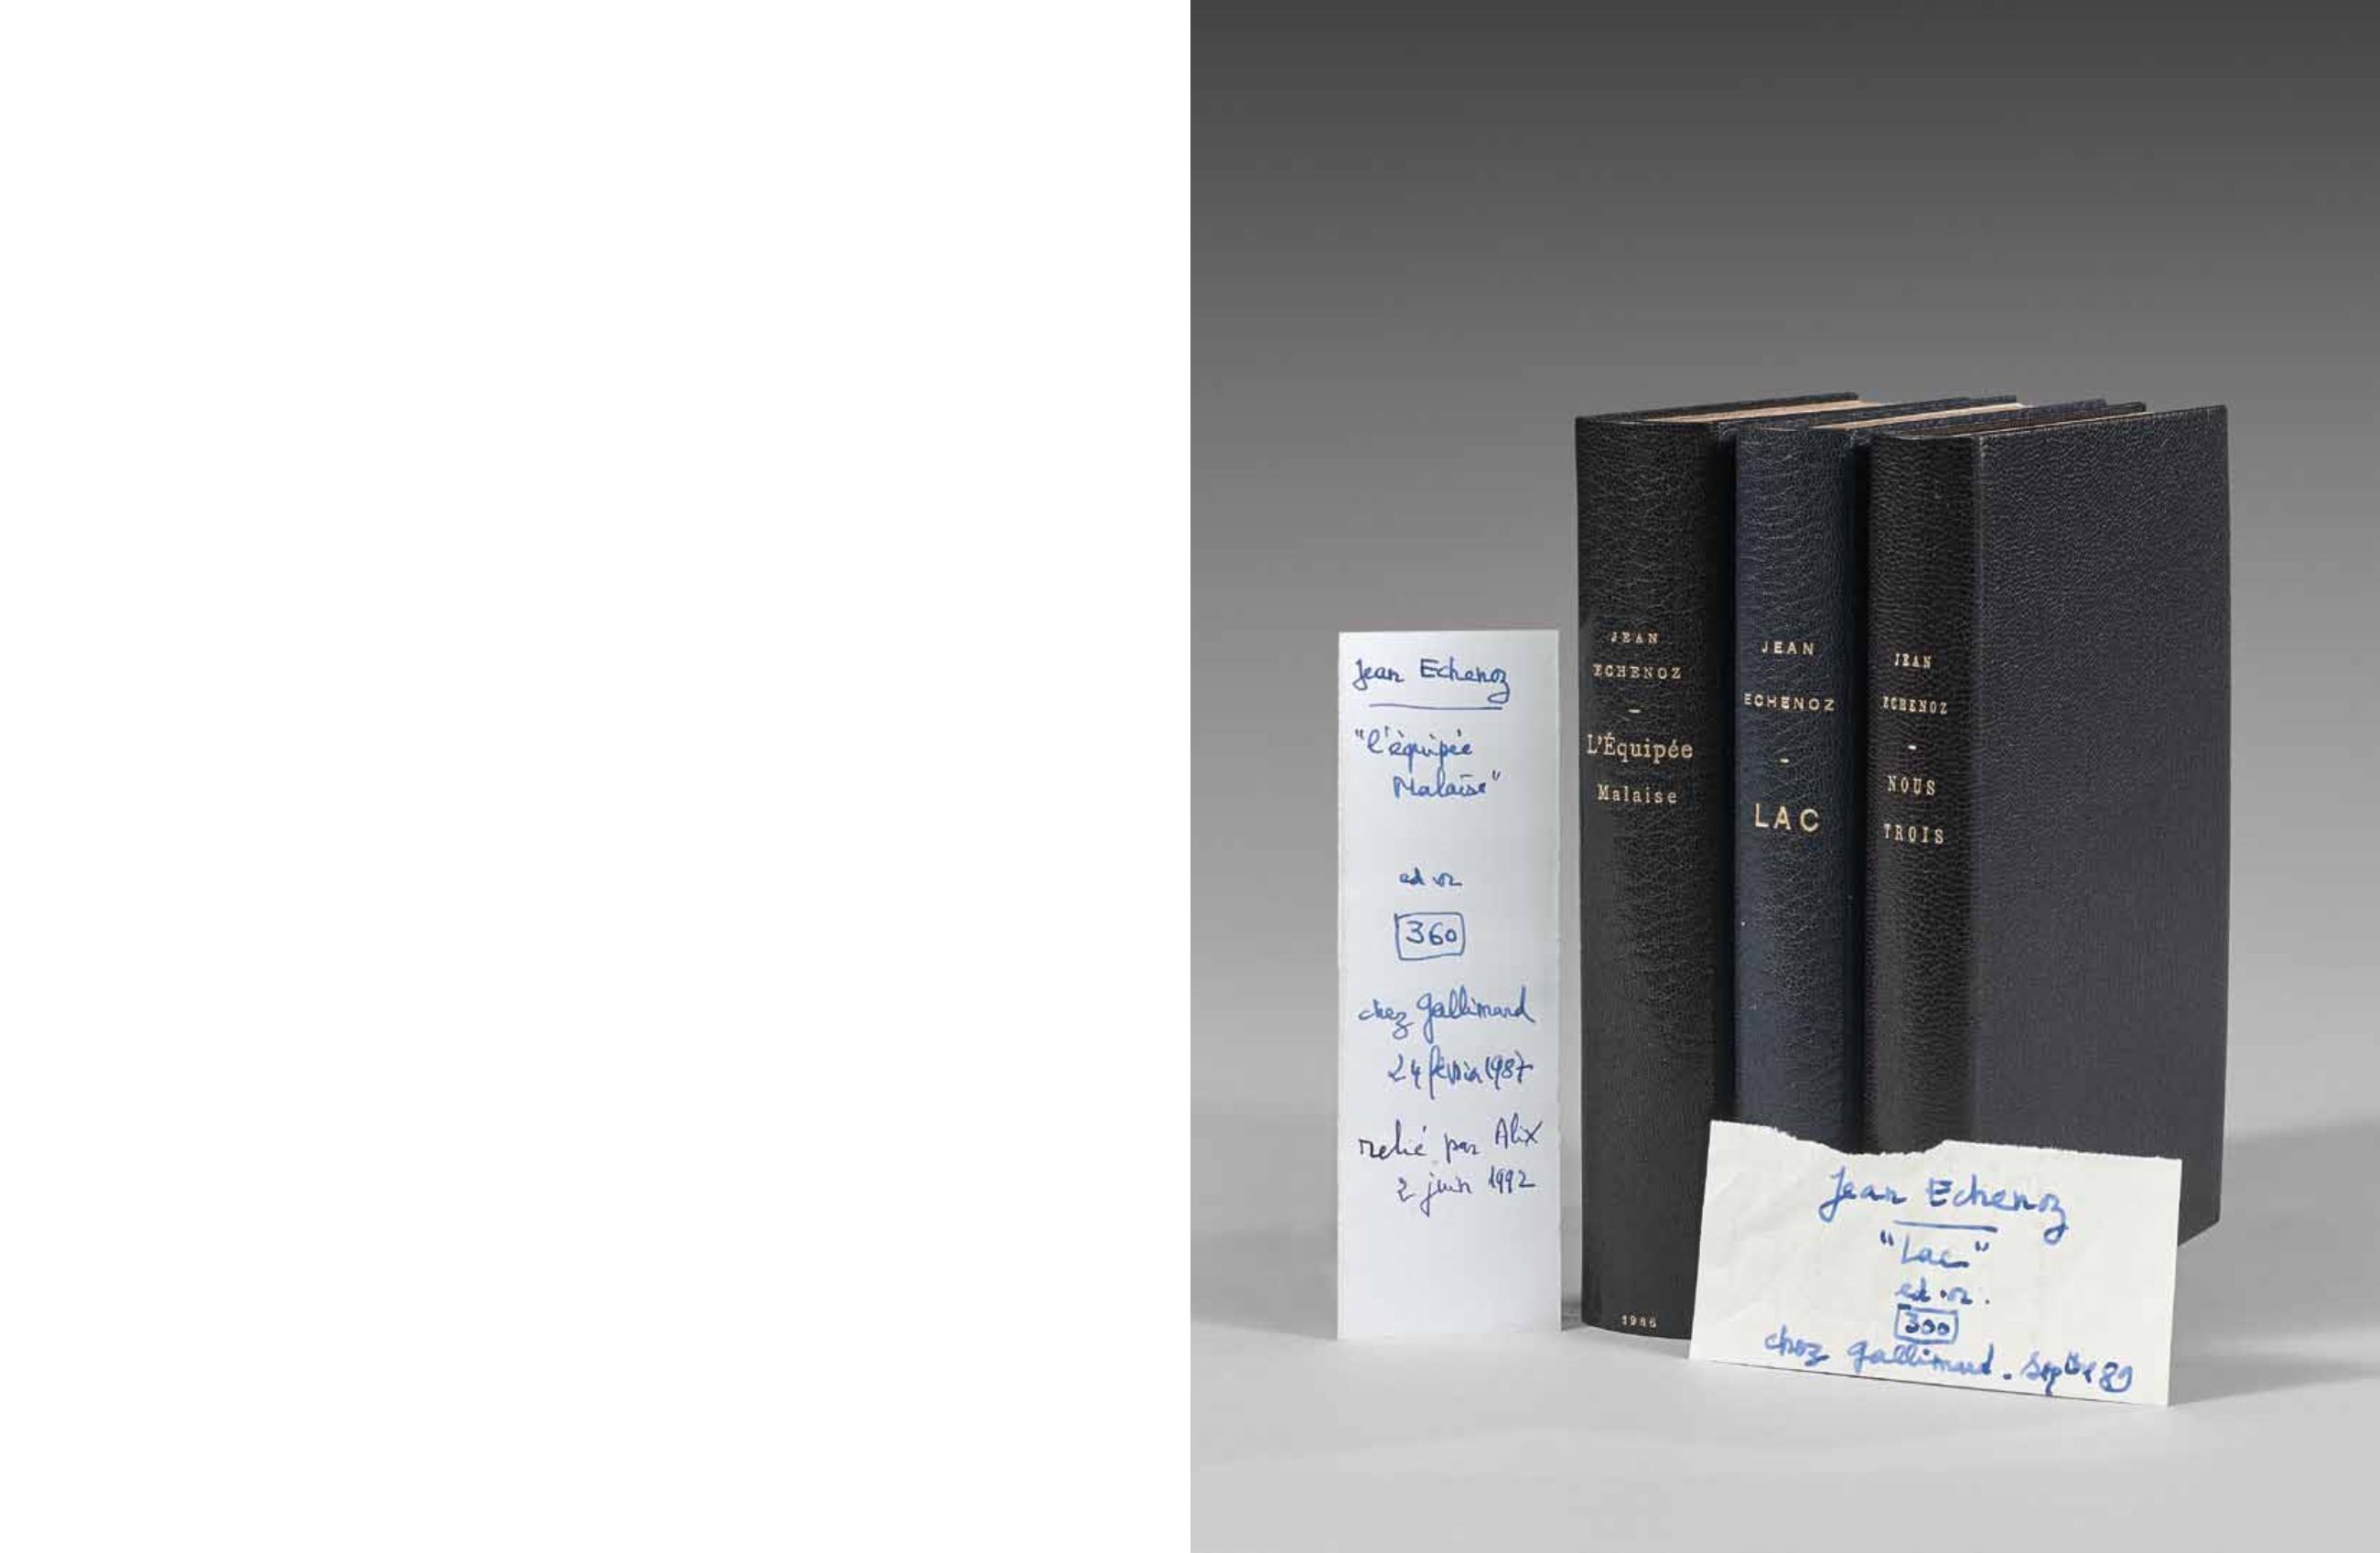 Jean Echenoz
"l'équipée
Malaise"
ed or
360
chez gallimard
24 février 1987
relié par Alix
2 juin 1992
JEAN
ECHENOZ
-
L'Équipée
Malaise
1986
JEAN
ECHENOZ
-
LAC
JEAN
ECHENOZ
-
NOUS
TROIS
Jean Echenoz
"Lac"
ed or.
300
chez gallimard. Sepbre 89